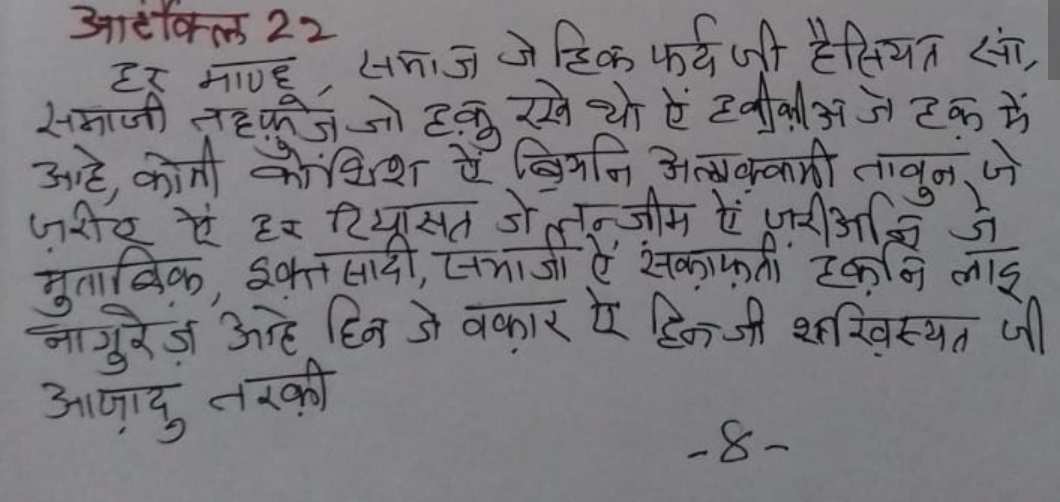 आर्टीकल 22
हर माण्हू, समाज जे हिक फर्द जी हैसियत सां,
समाजी तहफ़ुज़ जो हक़ु रखे थो ऐं हक़ीक़ीअ जे हक़ में
आहे, कोमी कोशिश ऐं बियनि अलाक़्वामी तावुन जे
ज़रीए ऐं हर रियासत जे तन्जीम ऐं ज़रीअनि जे
मुताबिक़, इक़्तसादी, समाजी ऐं सक़ाफ़ती हक़नि लाइ
नागुरेज़ आहे हिन जे वक़ार ऐं हिन जी शख़्स्यत जी
आज़ादु तरक़ी
-8-